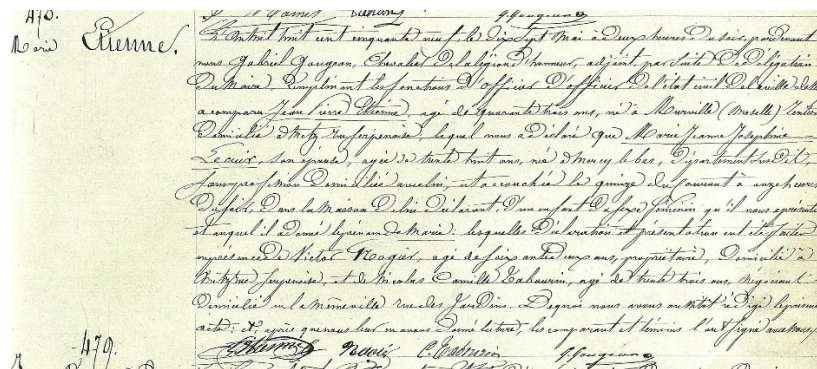 478.
Marie Etienne.
L'an mil huit cent cinquante neuf, le dix sept Mai à deux heures du soir, pardevant
nous Gabriel Gougeon, Chevalier de la légion d'honneur, adjoint, par suite de délégation
du Maire, remplissant les fonctions d'officier d'officier de l'état civil de la ville de
a comparu Jean Pierre Etienne, agé de quarante trois ans, né à Murville (Moselle)
domicilié à Metz, rue serpenoise, lequel nous a déclaré que Marie Jeanne Josephine
son épouse, agée de trente huit ans, née à Mercy le bas, département susdit,
sans profession domiciliée avec lui, est accouchée le quinze du courant à onze heures
du soir, dans la maison de lui déclarant, d'un enfant de sexe féminin qu'il nous a présenté
et auquel il a donné le prénom de Marie. lesquelles déclaration et présentation ont été faites
en présence de Victor agé de soixante deux ans, propriétaire, domicilié à
Metz rue serpenoise, et de Nicolas Camille agé de trente trois ans, négociant
domicilié en la même ville rue des Jardins. De quoi nous avons aussitôt rédigé le présent
acte; et, après que nous leur en avons donné lecture, les comparant et témoins l'ont signé avec nous
Etienne G. Gougeon
479.